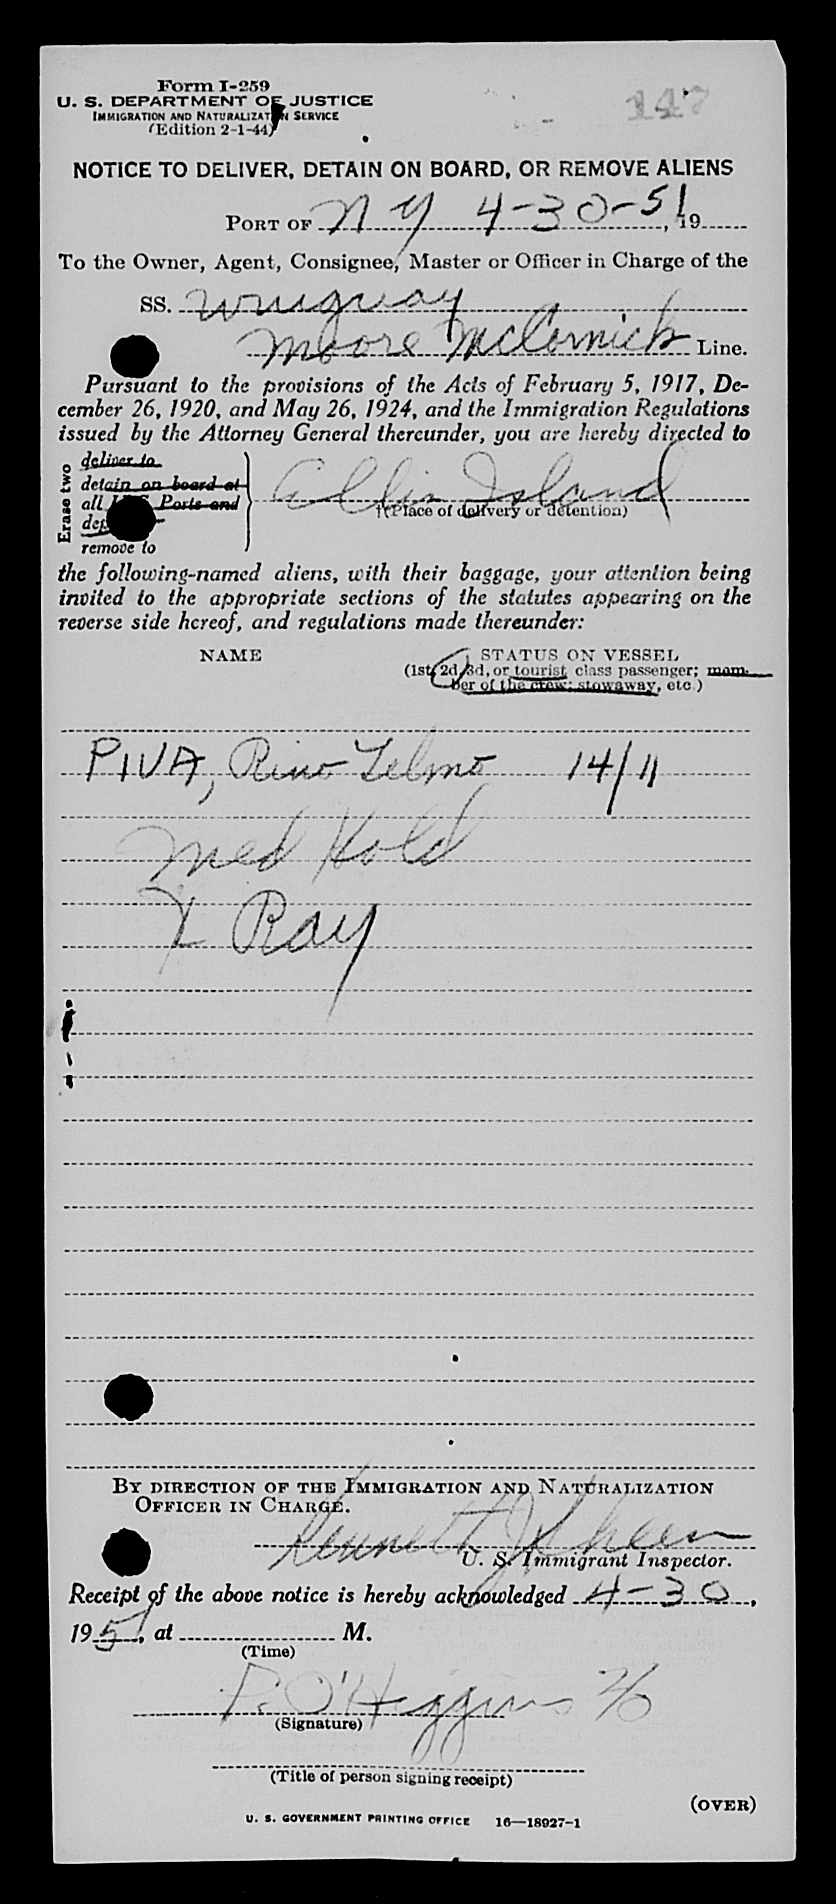 147
Form I-259
U. S. DEPARTMENT OF JUSTICE
IMMIGRATION AND NATURALIZATION SERVICE
(Edition 2-1-44)
NOTICE TO DELIVER, DETAIN ON BOARD, OR REMOVE ALIENS
PORT OF N Y 4-30-51, 19
To the Owner, Agent, Consignee, Master or Officer in Charge of the
SS. Uruguay
Moore McCormick Line.
Pursuant to the provisions of the Acts of February 5, 1917, De-
cember 26, 1920, and May 26, 1924, and the Immigration Regulations
issued by the Attorney General thereunder, you are hereby directed to
Erase two
deliver to
detain on board at
all Ports and
remove to
Ellis Island
†(Place of delivery or detention)
the following-named aliens, with their baggage, your attention being
invited to the appropriate sections of the statutes appearing on the
reverse side hereof, and regulations made thereunder:
NAME STATUS ON VESSEL
(1st, 2d, 3d, or tourist class passenger; mem-
ber of the crew; stowaway, etc.)
PIVA, Rino Telmo 14/11
Med Hold
X Ray
BY DIRECTION OF THE IMMIGRATION AND NATURALIZATION
OFFICER IN CHARGE.
Kenneth J
U. S. Immigrant Inspector.
Receipt of the above notice is hereby acknowledged 4-30,
1951, at M.
(Time)
P. O'Higgins
(Signature)
(Title of person signing receipt)
(OVER)
U. S. GOVERNMENT PRINTING OFFICE 16—18927-1